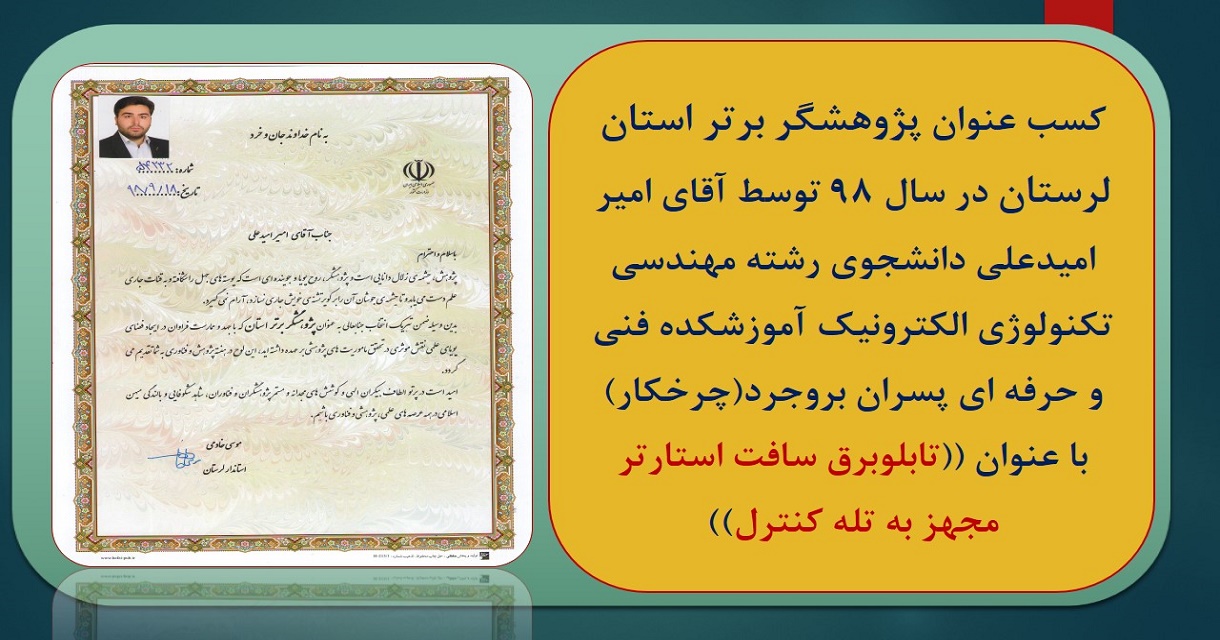 کسب عنوان پژوهشگر برتر استان
لرستان در سال ۹۸ توسط آقای امیر
امیدعلی دانشجوی رشته مهندسی
تکنولوژی الکترونیک آموزشکده فنی
و حرفه ای پسران بروجرد(چرخکار)
با عنوان ((تابلوبرق سافت استارتر
مجهز به تله کنترل))
به نام خداوند جان و خرد
شماره: ۵۴۲۳۲
تاریخ: ۹۸/۹/۱۸
جمهوری اسلامی ایران
وزارت کشور
جناب آقای امیر امیدعلی
باسلام و احترام
پژوهش، چشمه ی زلال دانایی است و پژوهشگر، روح پویا و جوینده ای است که پوسته های جهل را شکافته و به قنات جاری
علم دست می یابد و تا چشمه ی جوشان آن را بر کویر تشنه ی خویش جاری نسازد، آرام نمی گیرد.
بدین وسیله ضمن تبریک انتخاب جنابعالی به عنوان پژوهشگر برتر استان که با جهد و ممارست فراوان در ایجاد فضای
پویای علمی نقش موثری در تحقق ماموریت های پژوهشی بر عهده داشته اید، این لوح در هفته پژوهش و فناوری به شما تقدیم می
گردد.
امید است در پرتو الطاف بیکران الهی و کوشش های مجدانه و مستمر پژوهشگران و فناوران، شاهد شکوفایی و بالندگی میهن
اسلامی در همه عرصه های علمی، پژوهشی و فناوری باشیم.
موسی خادمی
استاندار لرستان